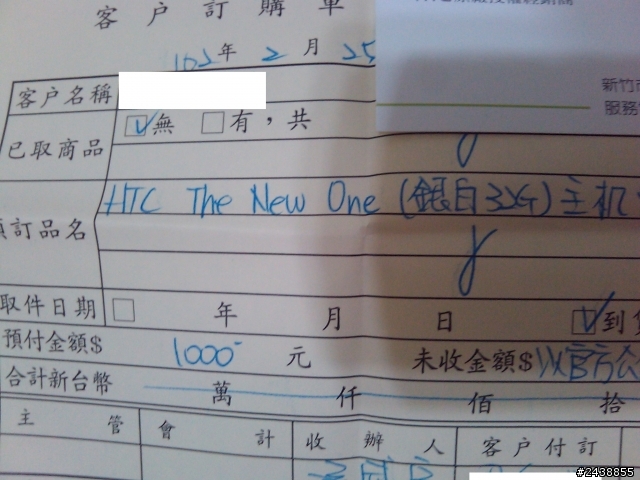 客戶訂購單
102年 2月 25
新竹市
服務
客戶名稱
已取商品 ☑無 □有，共
預訂品名 HTC The New One (銀白32G) 主机
取件日期 □ 年 月 日 ☑到貨
預付金額$ 1000- 元 未收金額$ 以官方公
合計新台幣 萬 仟 佰 拾
主管 會計 收辦人 客戶付訂
#2438855